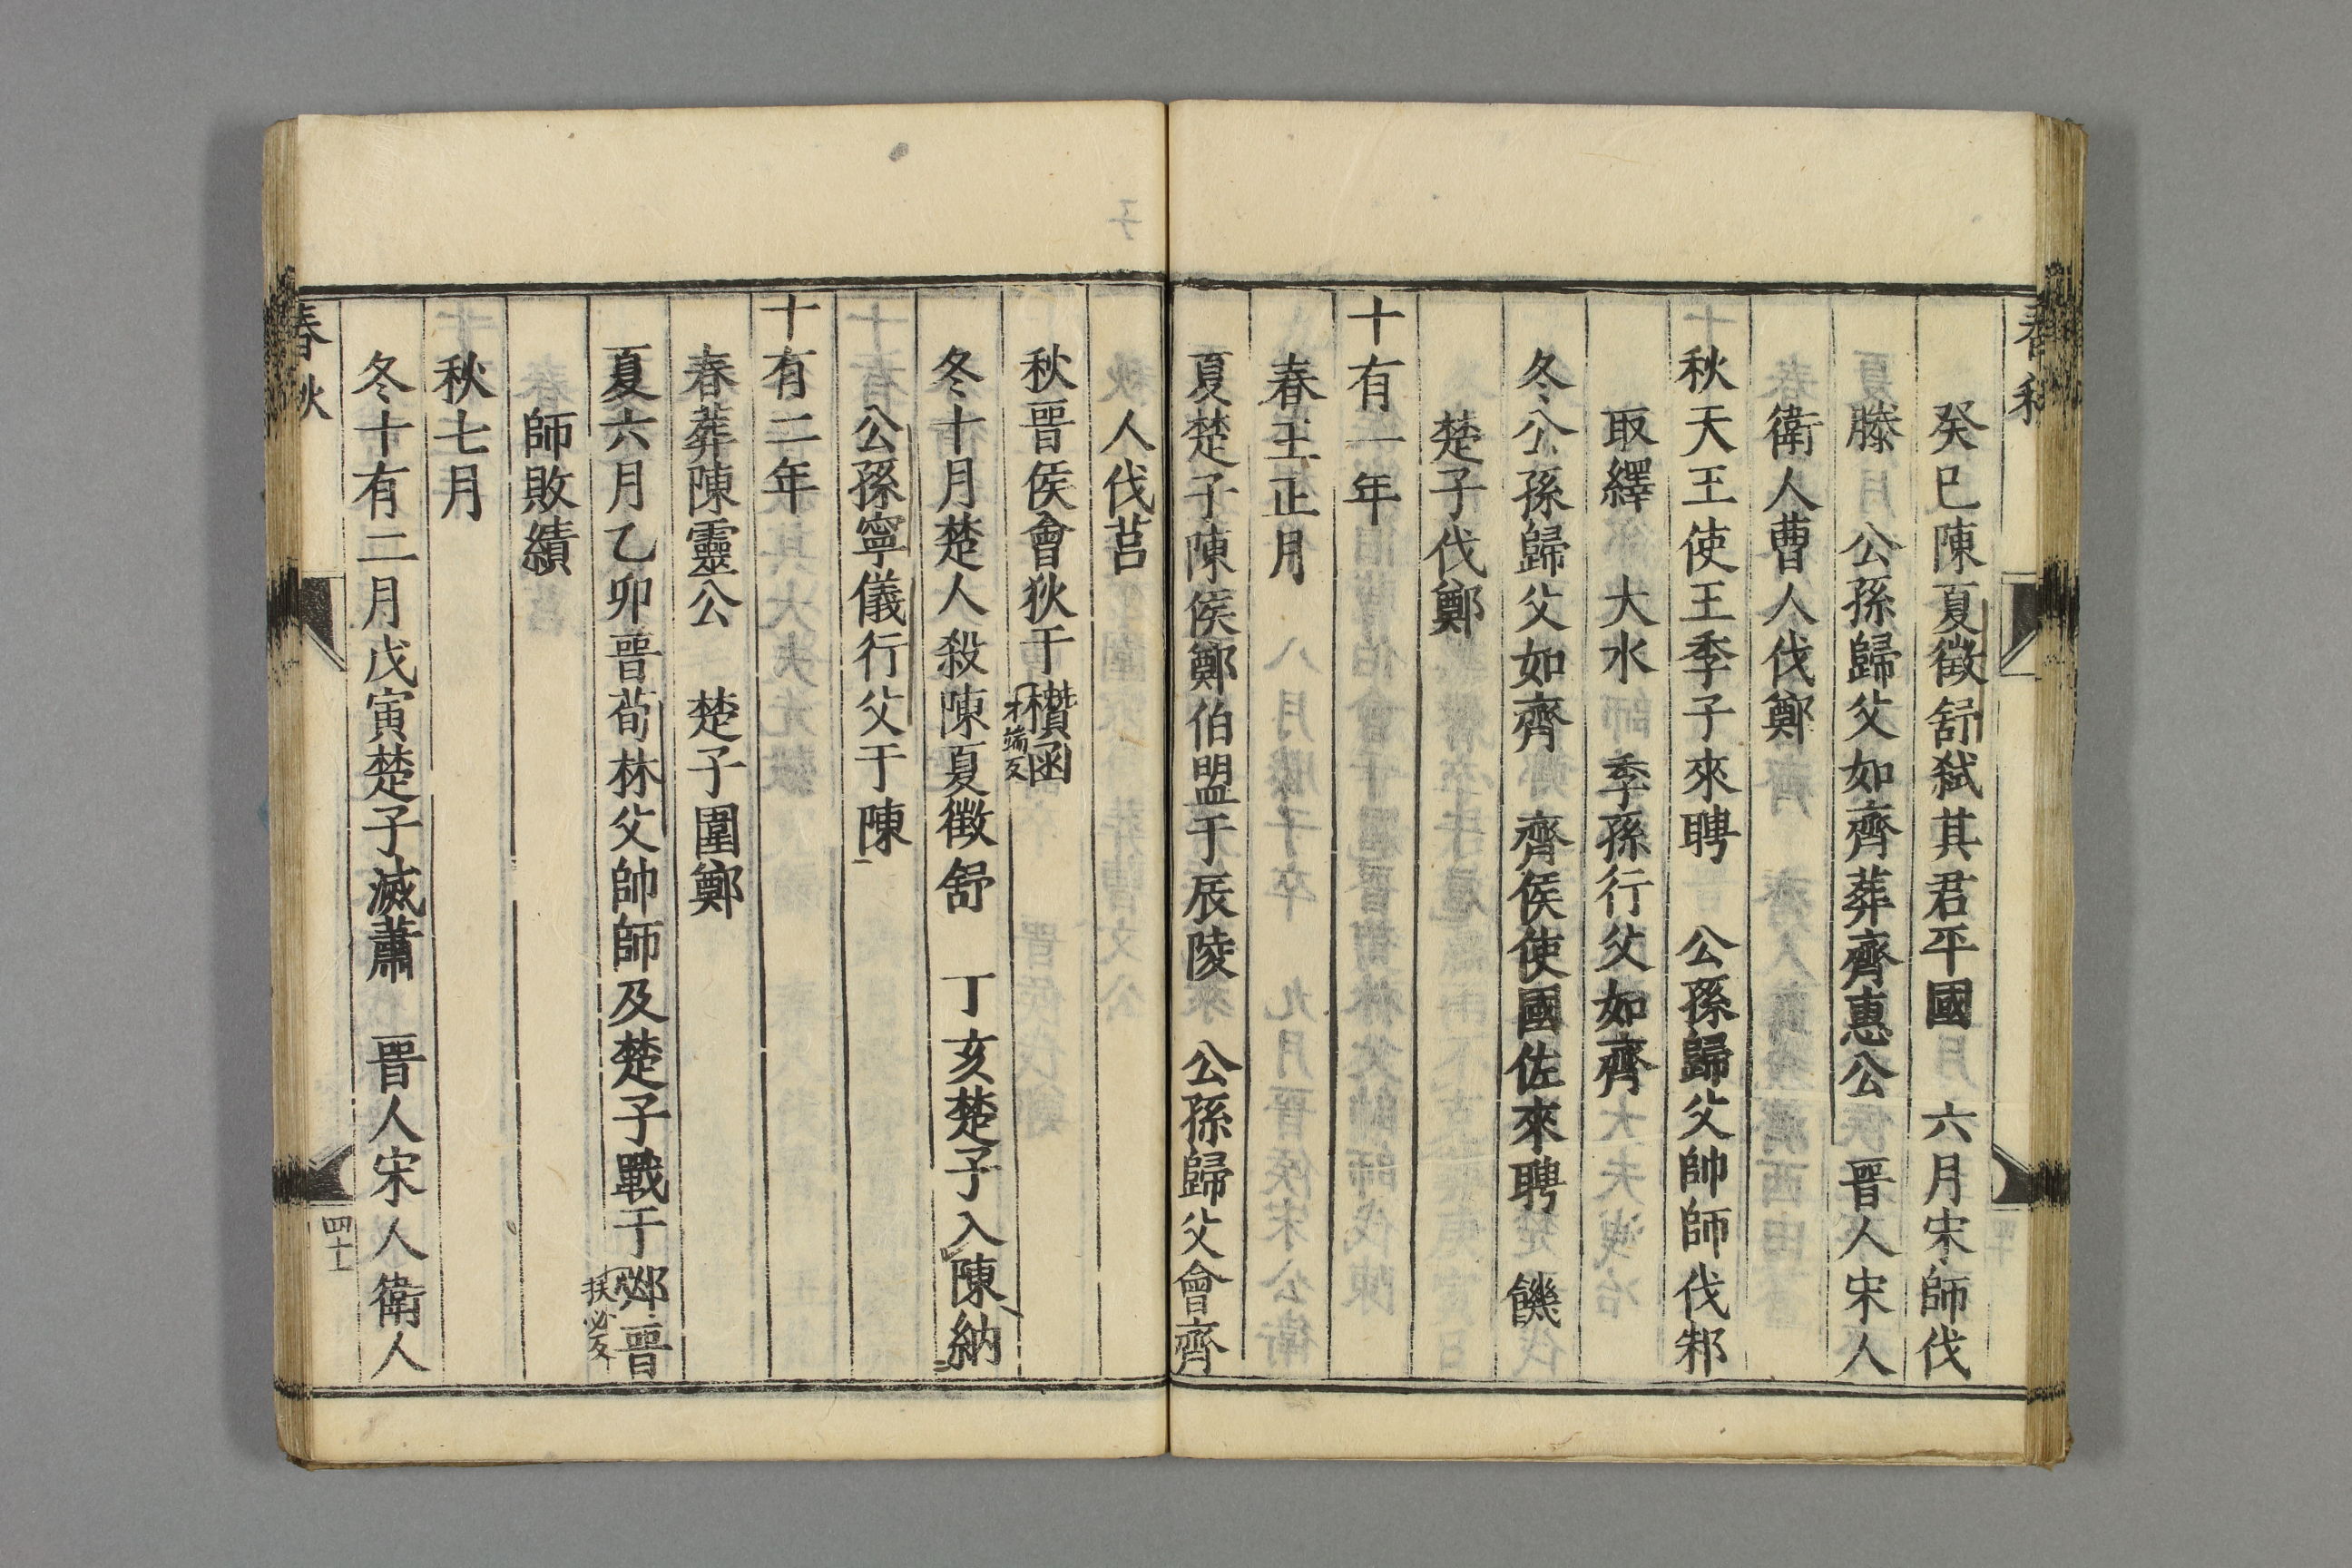 春秋
癸巳陳夏徵舒弑其君平國　六月宋師伐
滕　公孫歸父如齊葬齊惠公　晉人宋人
衛人曹人伐鄭
秋天王使王季子來聘　公孫歸父帥師伐邾
取繹　大水　季孫行父如齊
冬公孫歸父如齊　齊侯使國佐來聘　饑
楚子伐鄭
十有一年
春王正月
夏楚子陳侯鄭伯盟于辰陵　公孫歸父會齊
人伐莒
秋晉侯會狄于欑函
才端反
冬十月楚人殺陳夏徵舒　丁亥楚子入陳納
公孫寧儀行父于陳
十有二年
春葬陳靈公　楚子圍鄭
夏六月乙卯晉荀林父帥師及楚子戰于邲晉
扶必反
師敗績
秋七月
冬十有二月戊寅楚子滅蕭　晉人宋人衛人
春秋
四十一